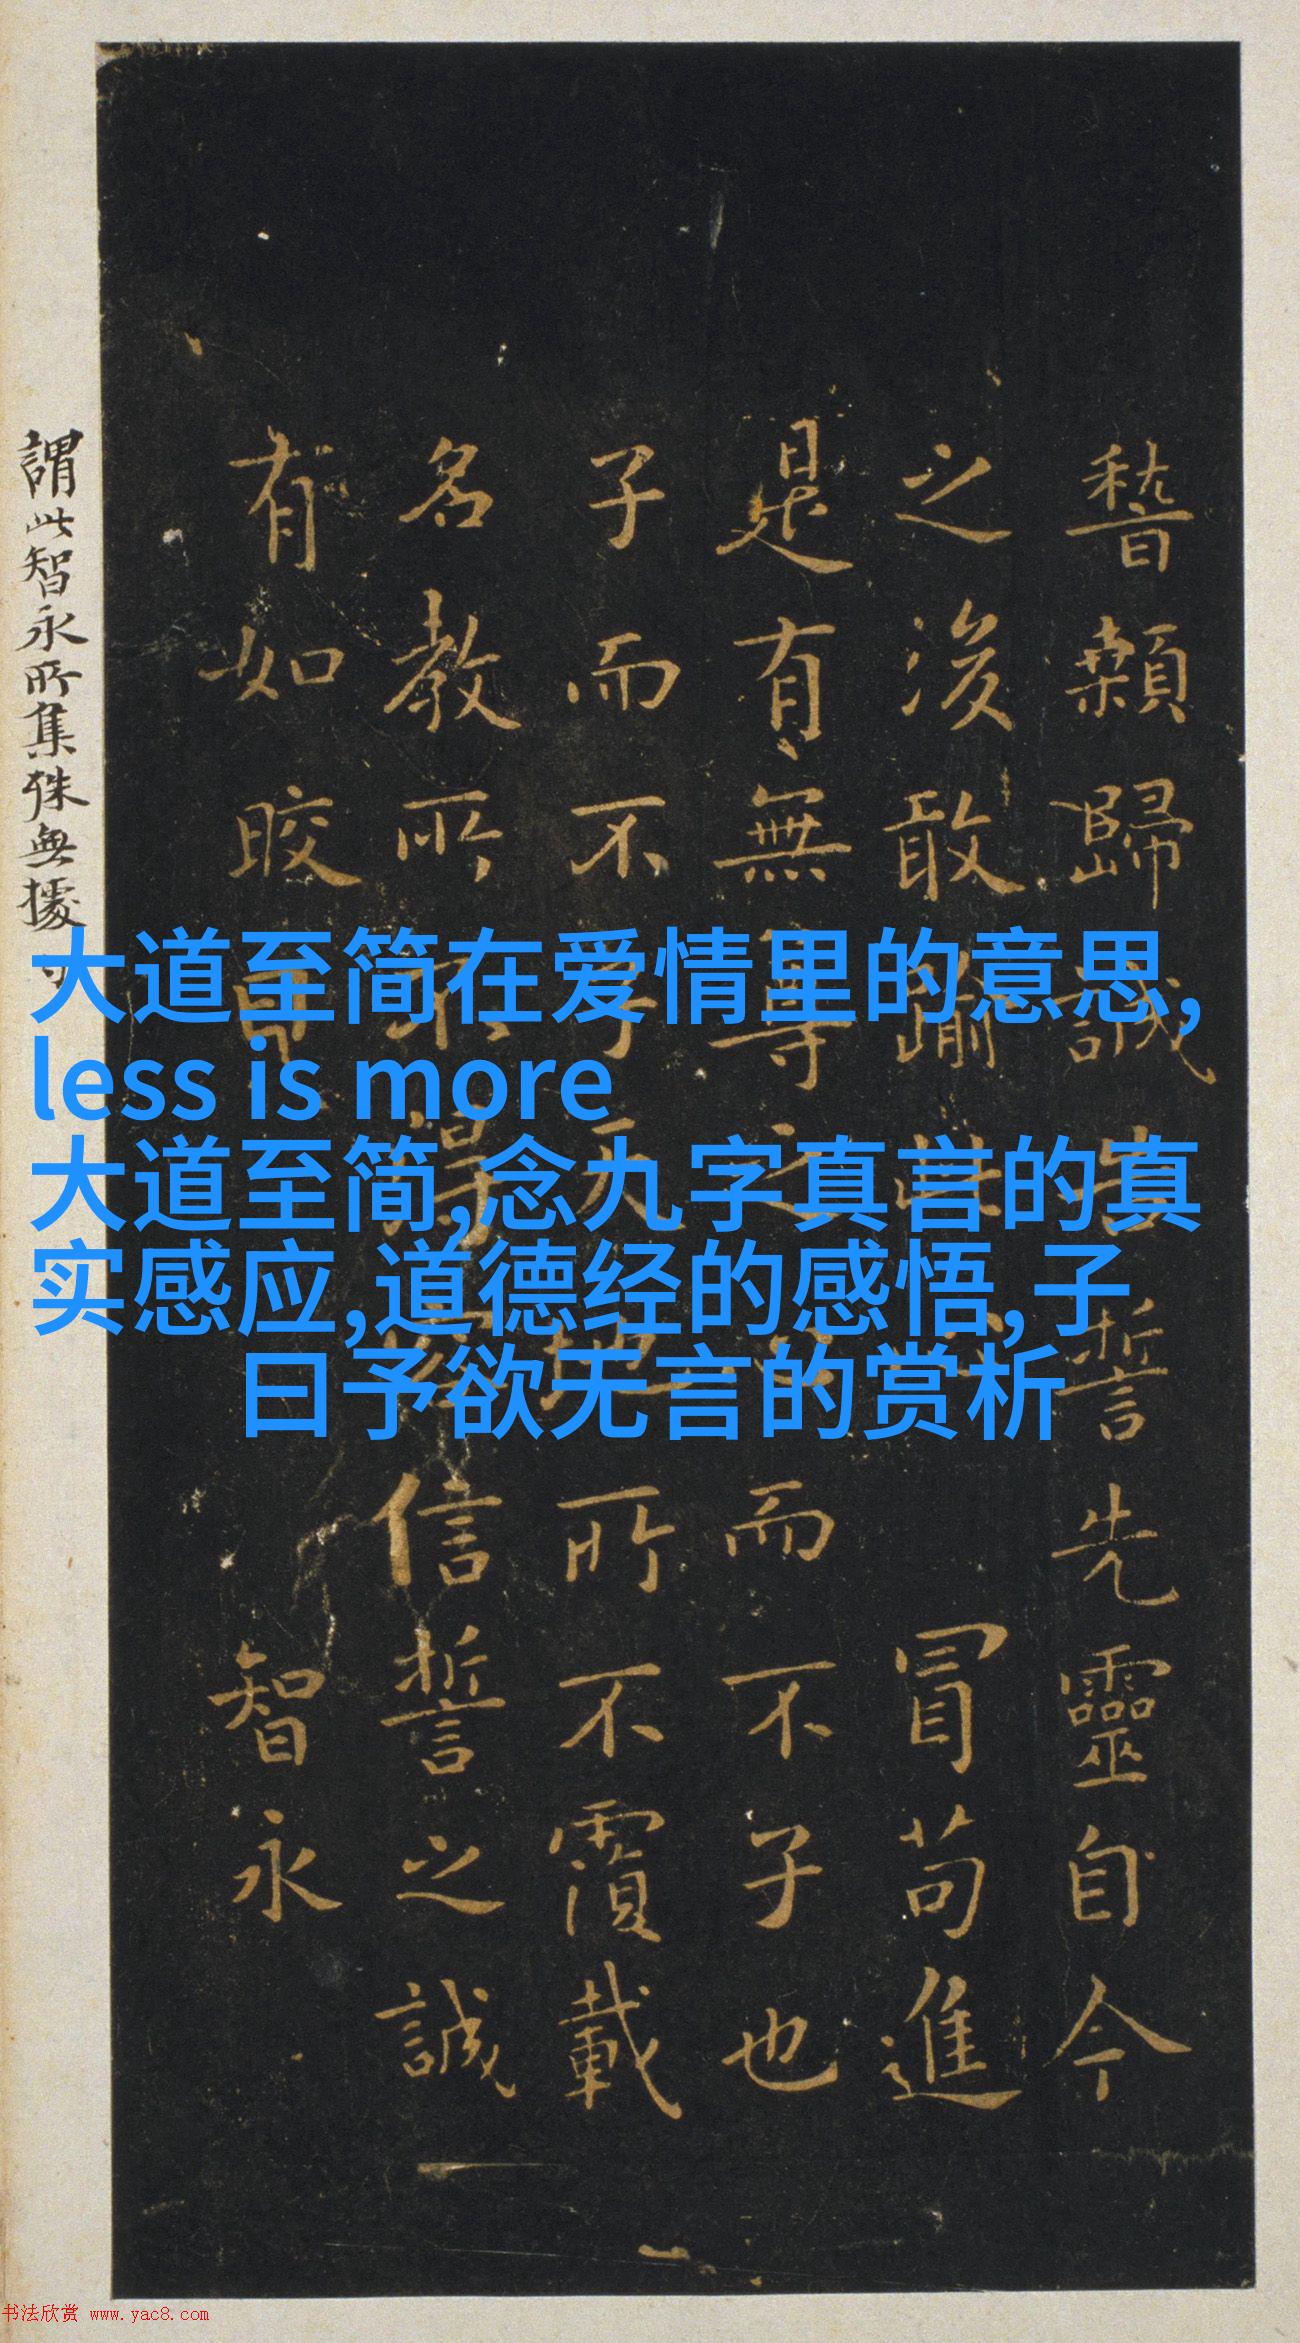 稽顙歸誠告誓先靈自今
之後敢蹦 冒苟進
是有無尊之心而不子也
子而不子天地所不覆載
名教所不得容信誓之誠
有如曒日
智永
謂此智永所集殊無據
大道至简在爱情里的意思,
less is more
大道至简,念九字真言的真
实感应,道德经的感悟,子
曰予欲无言的赏析
书法欣赏 www.yac8.com